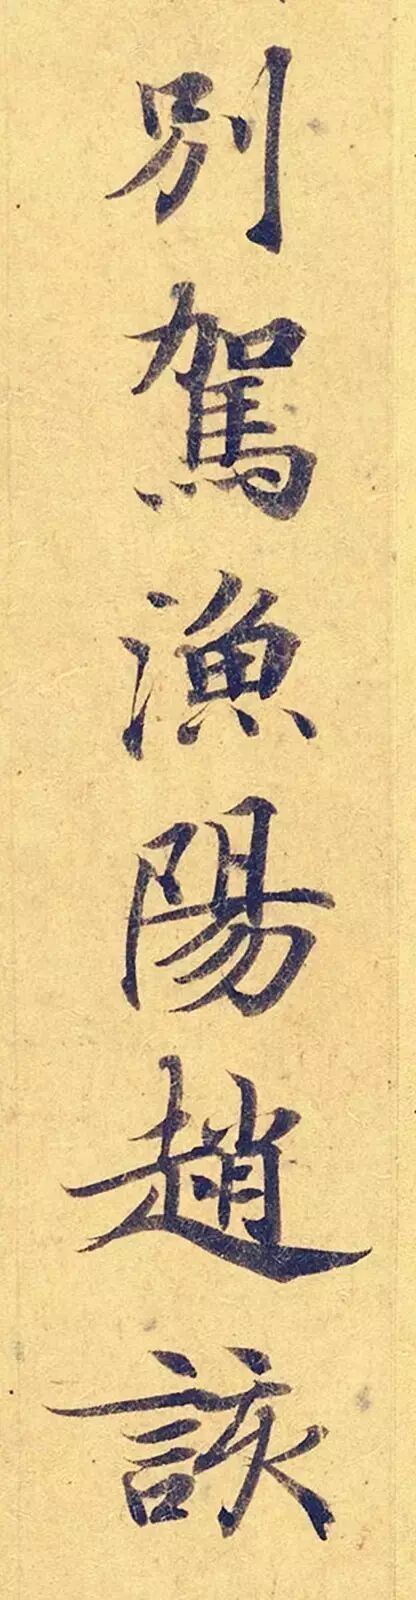 別駕漁陽趙該